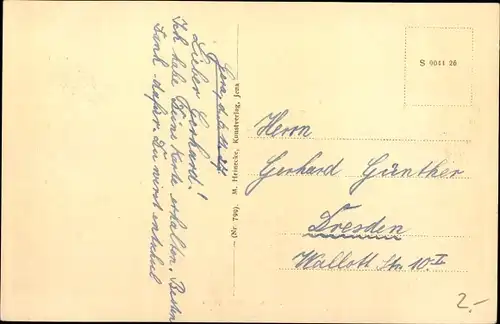 Jena, d.
Lieber Gerhard!
Ich habe Deine Karte erhalten. Besten
Dank dafür. Du wirst entschul
(Nr. 799) M. Heinecke, Kunstverlag, Jena
S 9041 26
Herrn
Gerhard Günther
Dresden
Wallott Str. 10 II
2.-